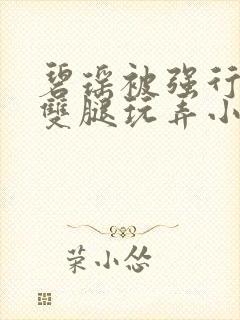 碧瑶被强行
雙腿玩弄小
荣小怂